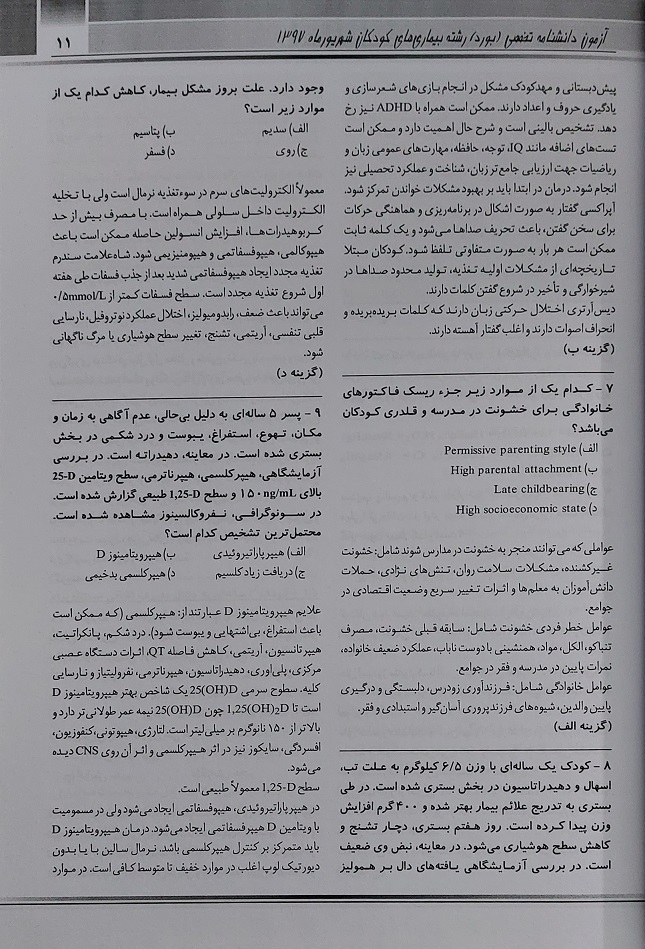 آزمون دانشنامه تخصصی (بورد) رشته بیماری‌های کودکان شهریورماه ۱۳۹۷
۱۱
پیش‌دبستانی و مهدکودک مشکل در انجام بازی‌های شعرسازی و
یادگیری حروف و اعداد دارند. ممکن است همراه با ADHD نیز رخ
دهد. تشخیص بالینی است و شرح حال اهمیت دارد و ممکن است
تست‌های اضافه مانند IQ، توجه، حافظه، مهارت‌های عمومی زبان و
ریاضیات جهت ارزیابی جامع‌تر زبان، شناخت و عملکرد تحصیلی نیز
انجام شود. درمان در ابتدا باید بر بهبود مشکلات خواندن تمرکز شود.
آپراکسی گفتار به صورت اشکال در برنامه‌ریزی و هماهنگی حرکات
برای سخن گفتن، باعث تحریف صداها می‌شود و یک کلمه ثابت
ممکن است هر بار به صورت متفاوتی تلفظ شود. کودکان مبتلا
تاریخچه‌ای از مشکلات اولیه تغذیه، تولید محدود صداها در
شیرخوارگی و تأخیر در شروع گفتن کلمات دارند.
دیس‌آرتری اختلال حرکتی زبان دارند که کلمات بریده‌بریده و
انحراف اصوات دارند و اغلب گفتار آهسته دارند.
(گزینه ب)
۷ - کدام یک از موارد زیر جزء ریسک فاکتورهای
خانوادگی برای خشونت در مدرسه و قلدری کودکان
می‌باشد؟
الف) Permissive parenting style
ب) High parental attachment
ج) Late childbearing
د) High socioeconomic state
عواملی که می‌توانند منجر به خشونت در مدارس شوند شامل: خشونت
غیرکشنده، مشکلات سلامت روان، تنش‌های نژادی، حملات
دانش‌آموزان به معلم‌ها و اثرات تغییر سریع وضعیت اقتصادی در
جوامع.
عوامل خطر فردی خشونت شامل: سابقه قبلی خشونت، مصرف
تنباکو، الکل، مواد، همنشینی با دوست ناباب، عملکرد ضعیف خانواده،
نمرات پایین در مدرسه و فقر در جوامع.
عوامل خانوادگی شامل: فرزندآوری زودرس، دلبستگی و درگیری
پایین والدین، شیوه‌های فرزندپروری آسان‌گیر و استبدادی و فقر.
(گزینه الف)
۸ - کودک یک ساله‌ای با وزن ۶/۵ کیلوگرم به علت تب،
اسهال و دهیدراتاسیون در بخش بستری شده است. در طی
بستری به تدریج علائم بیمار بهتر شده و ۴۰۰ گرم افزایش
وزن پیدا کرده است. روز هفتم بستری، دچار تشنج و
کاهش سطح هوشیاری می‌شود. در معاینه، نبض وی ضعیف
است. در بررسی آزمایشگاهی یافته‌های دال بر همولیز
وجود دارد. علت بروز مشکل بیمار، کاهش کدام یک از
موارد زیر است؟
الف) سدیم ب) پتاسیم
ج) روی د) فسفر
معمولاً الکترولیت‌های سرم در سوءتغذیه نرمال است ولی با تخلیه
الکترولیت داخل سلولی همراه است. با مصرف بیش از حد
کربوهیدرات‌ها، افزایش انسولین حاصله ممکن است باعث
هیپوکالمی، هیپوفسفاتمی و هیپومنیزیمی شود. شاه‌علامت سندرم
تغذیه مجدد ایجاد هیپوفسفاتمی شدید بعد از جذب فسفات طی هفته
اول شروع تغذیه مجدد است. سطح فسفات کمتر از ۰/۵mmol/L
می‌تواند باعث ضعف، رابدومیولیز، اختلال عملکرد نوتروفیل، نارسایی
قلبی تنفسی، آریتمی، تشنج، تغییر سطح هوشیاری یا مرگ ناگهانی
شود.
(گزینه د)
۹ - پسر ۵ ساله‌ای به دلیل بی‌حالی، عدم آگاهی به زمان و
مکان، تهوع، استفراغ، یبوست و درد شکمی در بخش
بستری شده است. در معاینه، دهیدراته است. در بررسی
آزمایشگاهی، هیپرکلسمی، هیپرناترمی، سطح ویتامین 25-D
بالای ۱۵۰ng/mL و سطح 1,25-D طبیعی گزارش شده است.
در سونوگرافی، نفروکالسینوز مشاهده شده است.
محتمل‌ترین تشخیص کدام است؟
الف) هیپرپاراتیروئیدی ب) هیپرویتامینوز D
ج) دریافت زیاد کلسیم د) هیپرکلسمی بدخیمی
علایم هیپرویتامینوز D عبارتند از: هیپرکلسمی (که ممکن است
باعث استفراغ، بی‌اشتهایی و یبوست شود). درد شکم، پانکراتیت،
هیپرتانسیون، آریتمی، کاهش فاصله QT، اثرات دستگاه عصبی
مرکزی، پلی‌اوری، دهیدراتاسیون، هیپرناترمی، نفرولیتیاز و نارسایی
کلیه. سطوح سرمی 25(OH)D یک شاخص بهتر هیپرویتامینوز D
است تا 1,25(OH)2D چون 25(OH)D نیمه عمر طولانی‌تر دارد و
بالاتر از ۱۵۰ نانوگرم بر میلی‌لیتر است. لتارژی، هیپوتونی، کنفوزیون،
افسردگی، سایکوز نیز در اثر هیپرکلسمی و اثر آن روی CNS دیده
می‌شود.
سطح 1,25-D معمولاً طبیعی است.
در هیپرپاراتیروئیدی، هیپوفسفاتمی ایجاد می‌شود ولی در مسمومیت
با ویتامین D هیپرفسفاتمی ایجاد می‌شود. درمان هیپرویتامینوز D
باید متمرکز بر کنترل هیپرکلسمی باشد. نرمال سالین با یا بدون
دیورتیک لوپ اغلب در موارد خفیف تا متوسط کافی است. در موارد